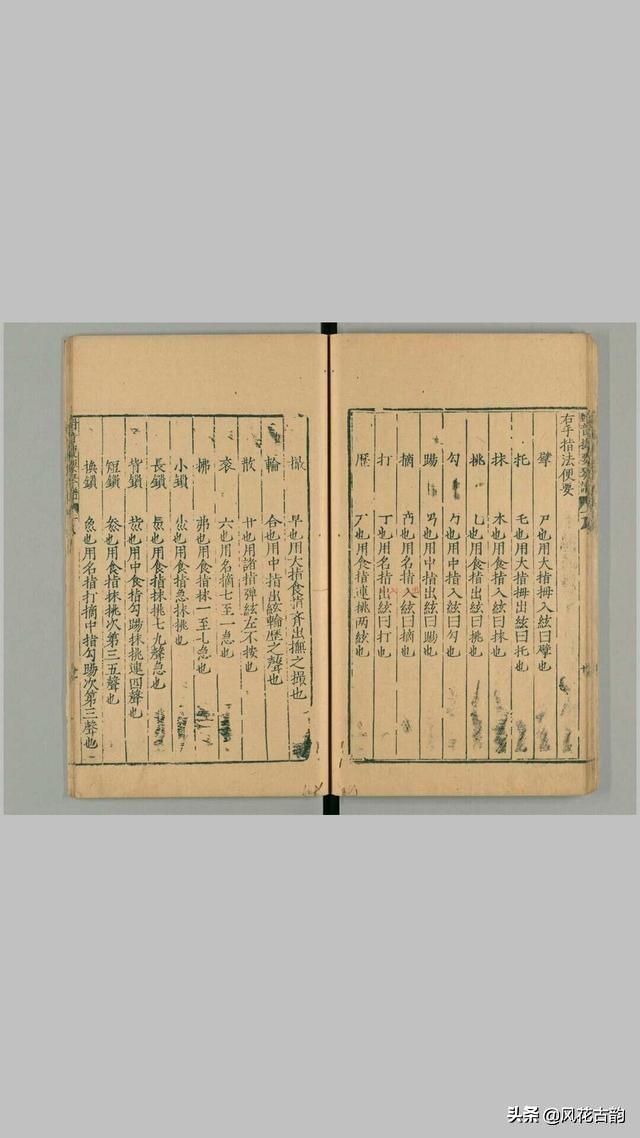 右手指法便要
擘 尸也用大指拇入絃曰擘也
托 乇也用大指拇出絃曰托也
抹 木也用食指入絃曰抹也
挑 乚也用食指出絃曰挑也
勾 勹也用中指入絃曰勾也
踢 也用中指出絃曰踢也
摘 也用名指入絃曰摘也
打 丁也用名指出絃曰打也
歷 厂也用食指連挑兩絃也
撮 早也用大指食指齊出撫之撮也
輪 合也用中指出絃輪歷之聲也
散 廿也用諸指彈絃左不挨也
衮 六也用名摘七至一急也
拂 弗也用食指抹一至七急也
小鎖 也用食指急抹挑也
長鎖 也用食指抹挑七九聲急也
背鎖 也用中食指勾踢抹挑連四聲也
短鎖 也用食指抹挑次第三五聲也
換鎖 也用名指打摘中指勾踢次第三聲也
头条 @风花古韵